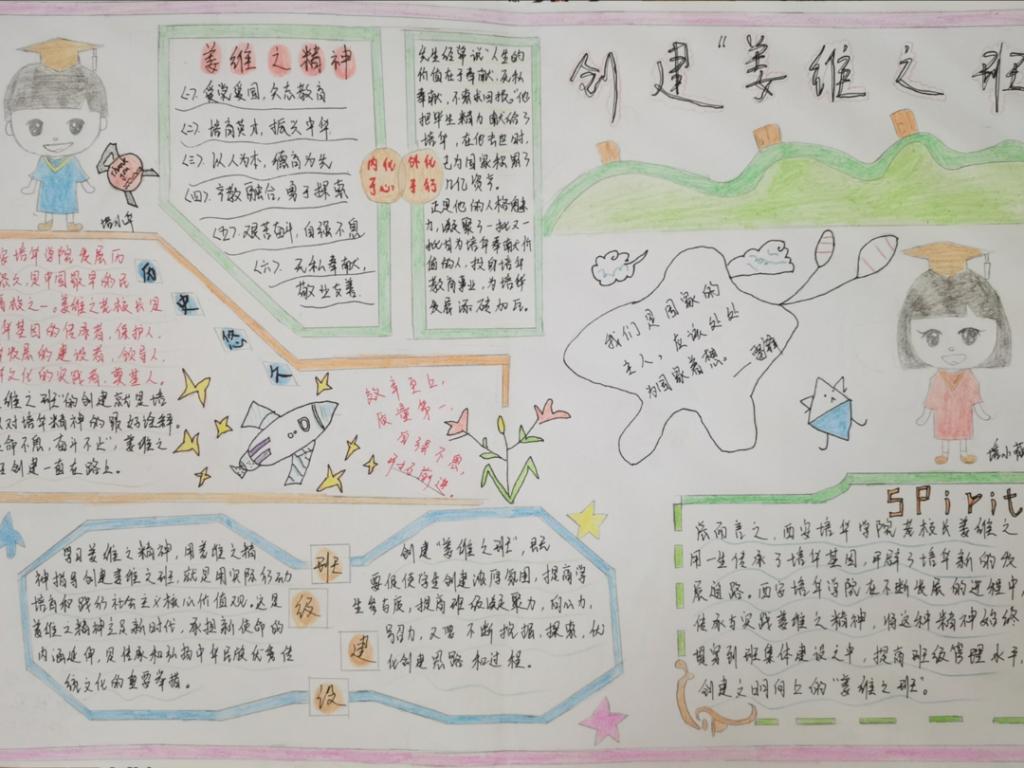 创建"姜维之班
姜维之精神
(一). 爱党爱国,矢志教育
(二). 培育英才,振兴中华
(三). 以人为本,德育为先
(四). 产教融合,勇于探索
(五). 艰苦奋斗,自强不息
(六). 无私奉献,
敬业友善.
内化
于心
外化
于行
先生经常说"人生的
价值在于奉献,无私
奉献,不需求回报。"他
把毕生精力献给了
培华,在他去世时,
已为国家积累了
几亿资产。
正是他的人格魅
力,凝聚了一批又一
批甘为培华奉献价
值的人,投身培华
教育事业,为培华
发展添砖加瓦。
Thank
you
培小华
历
史
悠
久
培华学院发展历
悠久,是中国最早的民
之一。姜维之老校长是
华基因的传承者,保护人,
发展的建设者,领导人,
文化的实践者,奠基人。
维之班"的创建就是培
对培华精神的最好诠释。
命不息,奋斗不止",姜维之
创建一直在路上。
效率至上,
质量第一,
自强不息,
开拓前进。
我们是国家的
主人,应该处处
为国家着想。
——雷锋
培小萌
学习姜维之精神,用姜维之精
神指导创建姜维之班,就是用实际行动
培育和践行社会主义核心价值观。这是
姜维之精神立足新时代,承担新使命的
内涵延伸,是传承和弘扬中华民族优秀传
统文化的重要举措。
班
级
建
设
创建"姜维之班",既
要促使学生创建浓厚氛围,提高学
生参与度,提高班级凝聚力,向心力,
号召力,又要不断挖掘,探索,优
化创建思路和过程。
SPirit
总而言之,西安培华学院老校长姜维之
用一生传承了培华基因,开辟了培华新的发
展道路。西安培华学院在不断发展的进程中,
传承与实践姜维之精神,将这种精神始终
贯穿到班集体建设之中,提高班级管理水平,
创建文明向上的"姜维之班"。